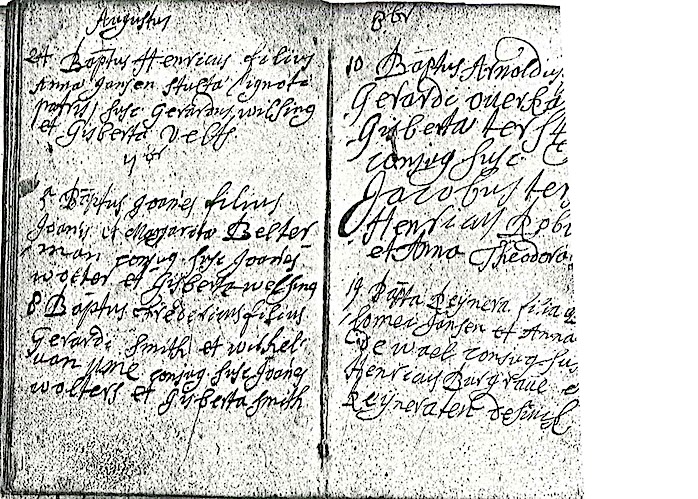 Augustus
24 Baptus Henricus filius
Anna Jansen stulta ignoti
patris, susc Gerardus wilsing
et Gisberta Velth
5 Baptus Joanes filius
Joanis et Margarita Belter
man conjug. susc Joanes
wolter et Gisberta welsing
8 Baptus Fridericus filius
Gerardi Smith et wilhel
van conjug susc Joanes
wolters et Gisberta Smith
8br
10 Baptus Arnoldus
Gerardi overka
Gisberta ters
conjug susc
Jacobus ter
Henricus Robi
et Anna Theodora
19 Bapta Reynera filia
lomei Jansen et Anna
de wael conjug su
Henricus Burgrave e
Reynera ten